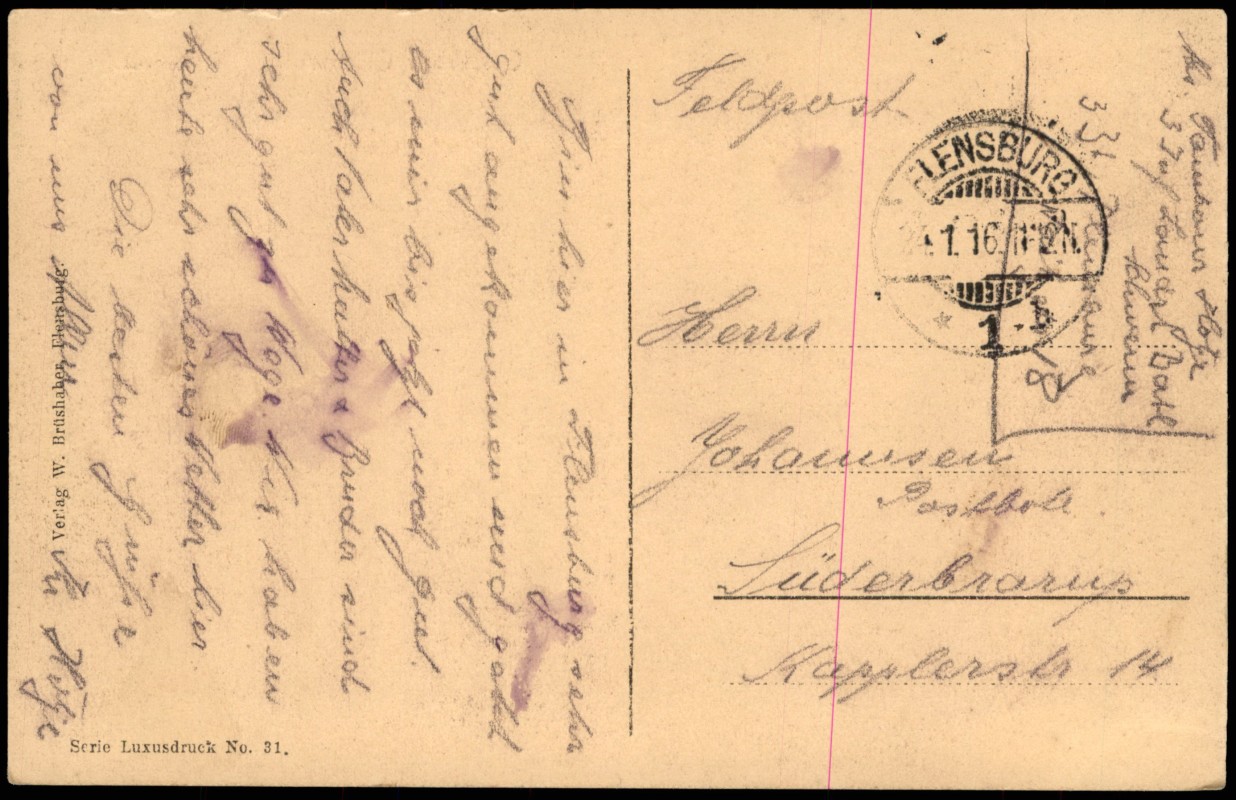 Bin hier in Flensburg sehr
gut angekommen und geht
es mir bis jetzt noch gut.
auch Vater Mutter & Bruder sind
sehr gut zu Wege. Wir haben
heute sehr schönes Wetter hier
Die besten Grüße
von uns Allen
Hotje
Verlag W. Brüshaber, Flensburg.
Serie Luxusdruck No. 31.
Feldpost
FLENSBURG
1.16. 11-12.N.
* 1
Abs. Tambour Hotje
3 Inf Landst Batl
Schwerin
Herrn
Johannsen
Postbote
Süderbrarup
Kapplerstr 14